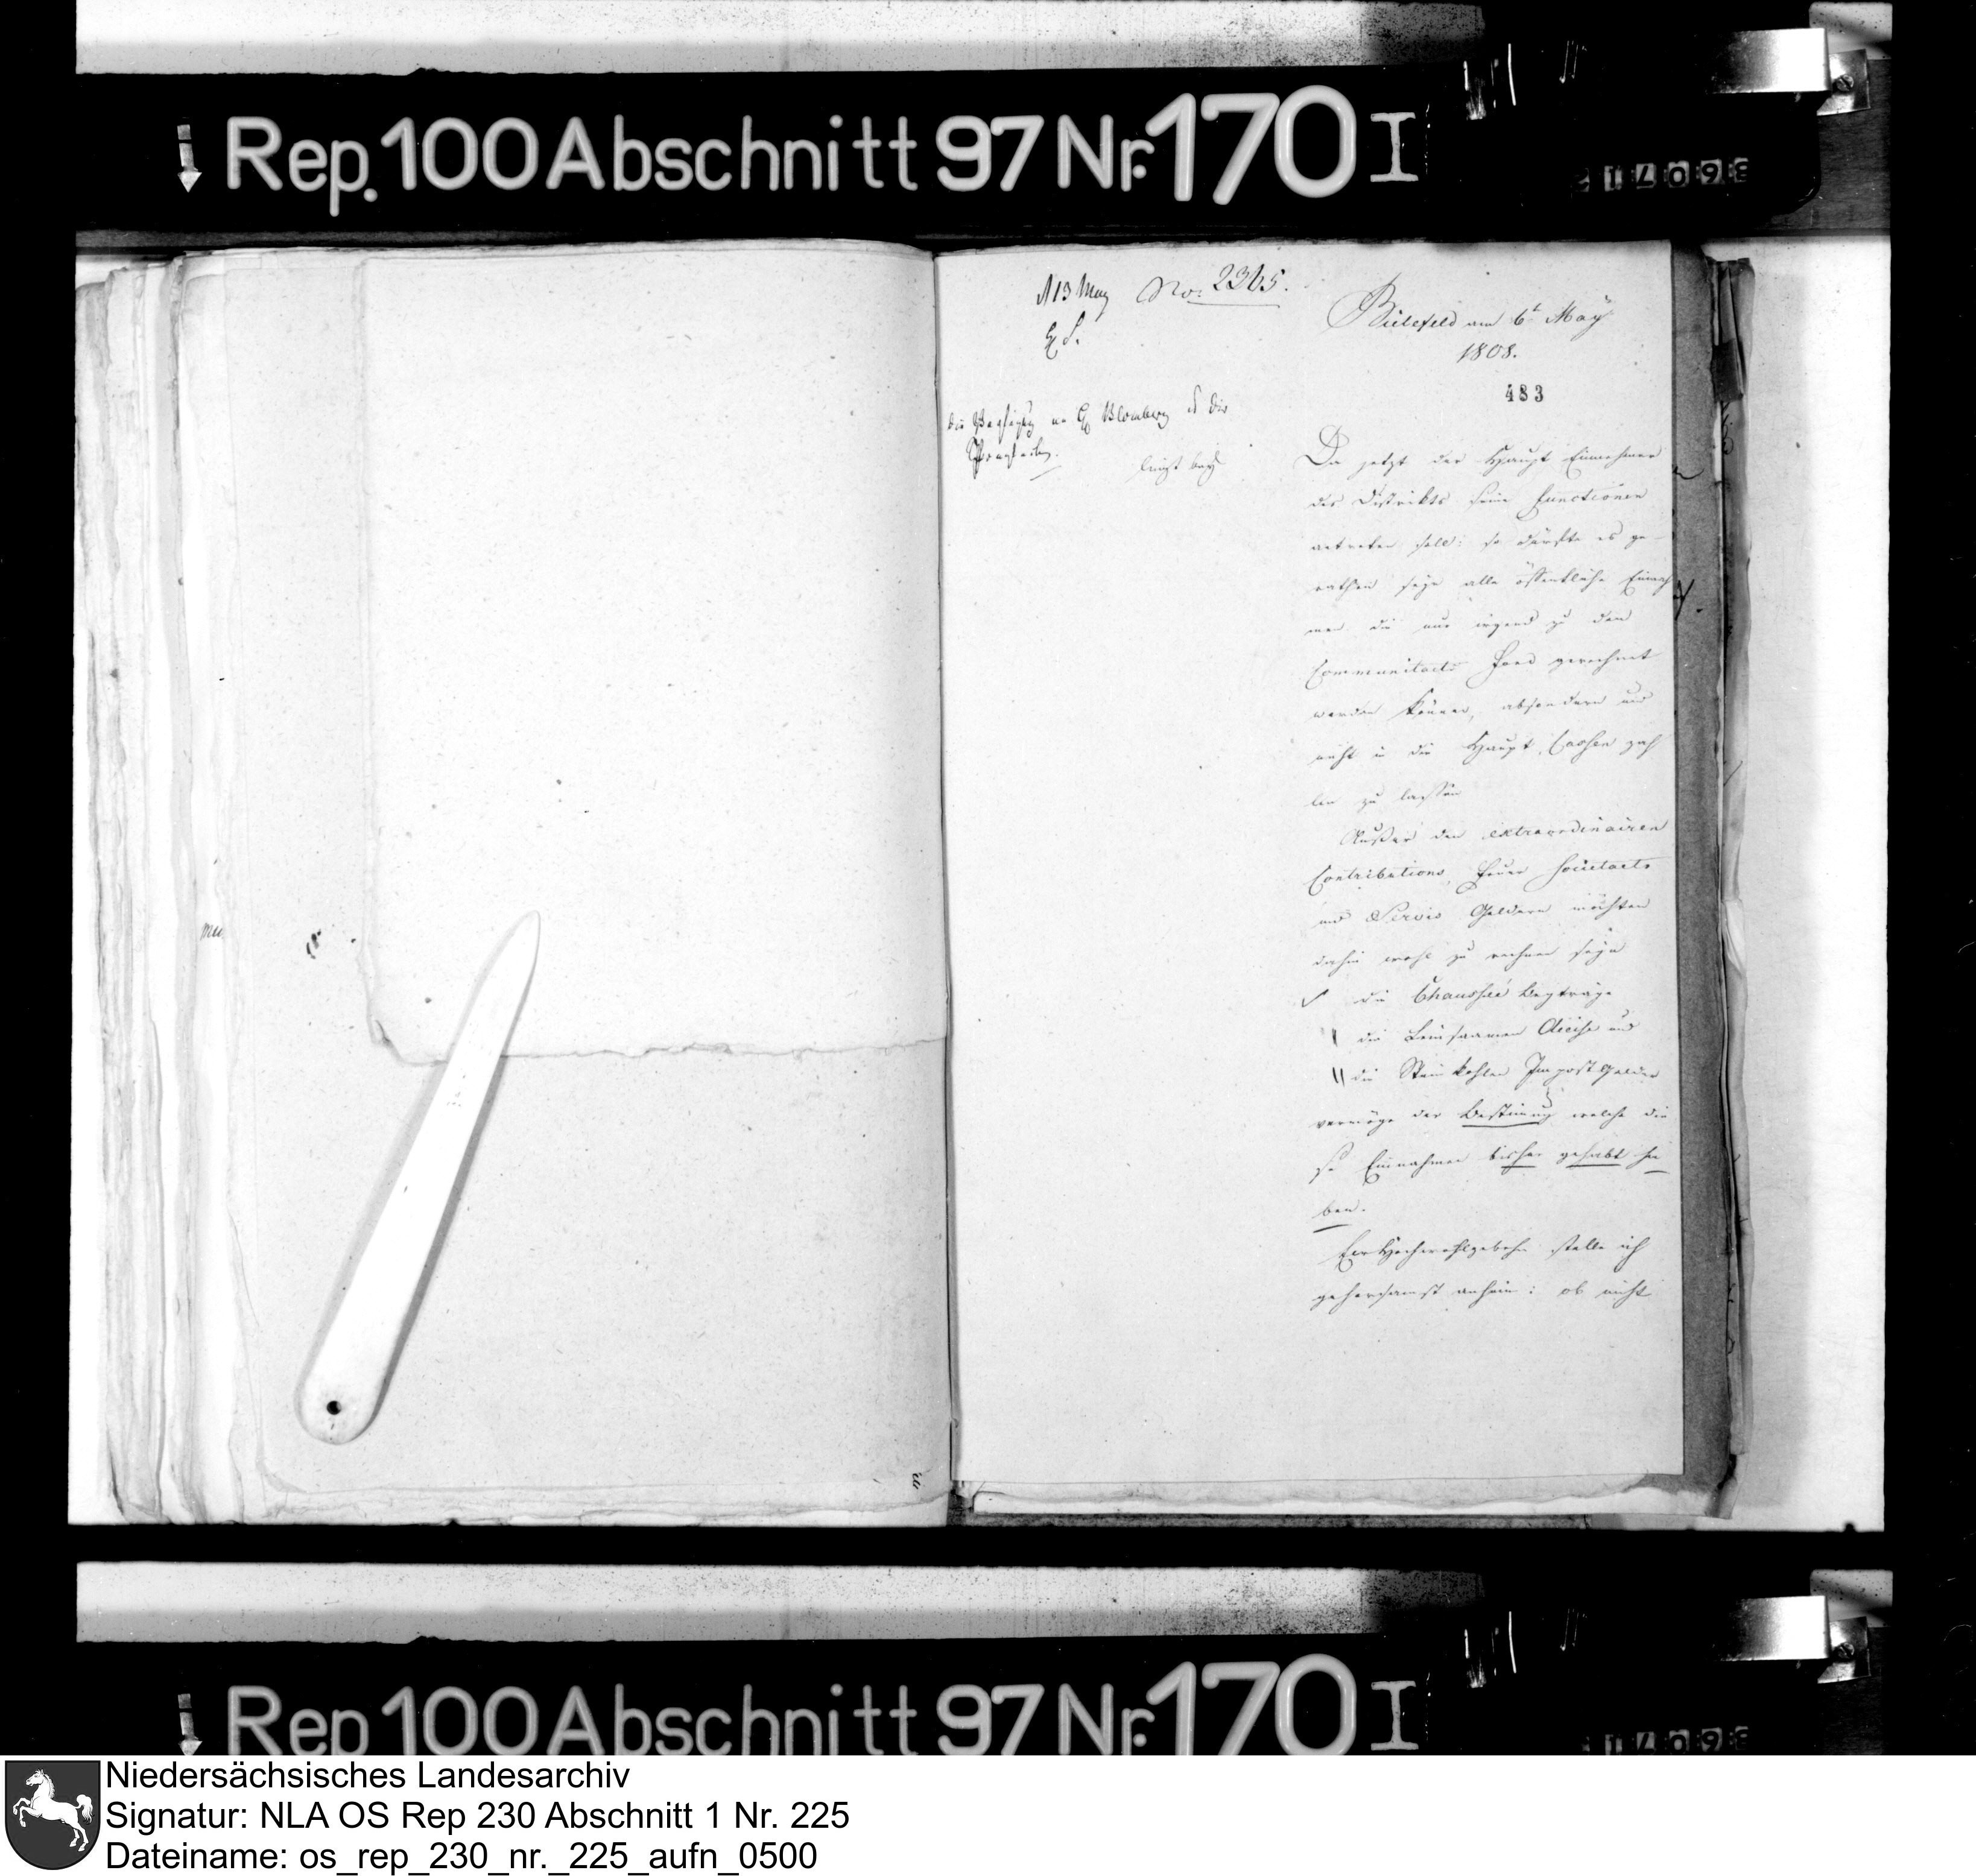 Rep. 100 Abschnitt 97 Nr. 170 I
13 May No: 2365.
Bielefeld am 6t May
1808.
483
liegt bey
Da jetzt der Haupt Einnehmer
des Distrikts seine Functionen
antreten soll: so dürfte es ge-
rathen seyn alle öffentliche Einnah
men die nur irgend zu den
Communitaets Fond gerechnet
werden können, absondern und
nicht in die Haupt Cassen zah
len zu lassen
Außer den extraordinairen
Contributions, Feuer Societaets
und Servis Geldern möchten
dahin wohl zu rechnen seyn
die Chausseé Beyträge
die Leinsaamen Accise und
die Steinkohlen Impost Gelder
vermöge der Bestimung welche die
se Einnahmen bisher gehabt ha
ben.
Ew Hochwohlgebohr stelle ich
gehorsamst anheim: ob nicht
Rep 100 Abschnitt 97 Nr. 170 I
Niedersächsisches Landesarchiv
Signatur: NLA OS Rep 230 Abschnitt 1 Nr. 225
Dateiname: os_rep_230_nr._225_aufn_0500